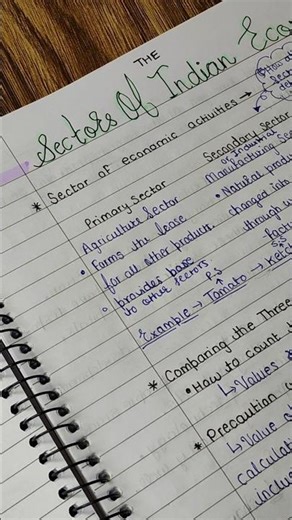 THE
Sectors Of Indian Eco
* Sector of economic activities →
How
Primary Sector
Agriculture Sector
• Forms the base
for all other products.
• provides base
to other sectors
Secondary Sector
or industrial
Manufacturing Sec
• Natural produ
changed into
through
P.S
S.S
Example → Tomato → Ketc
* Comparing the Three
• How to count t
↳ Values
* Precaution
↳ Value o
calculati
inclu